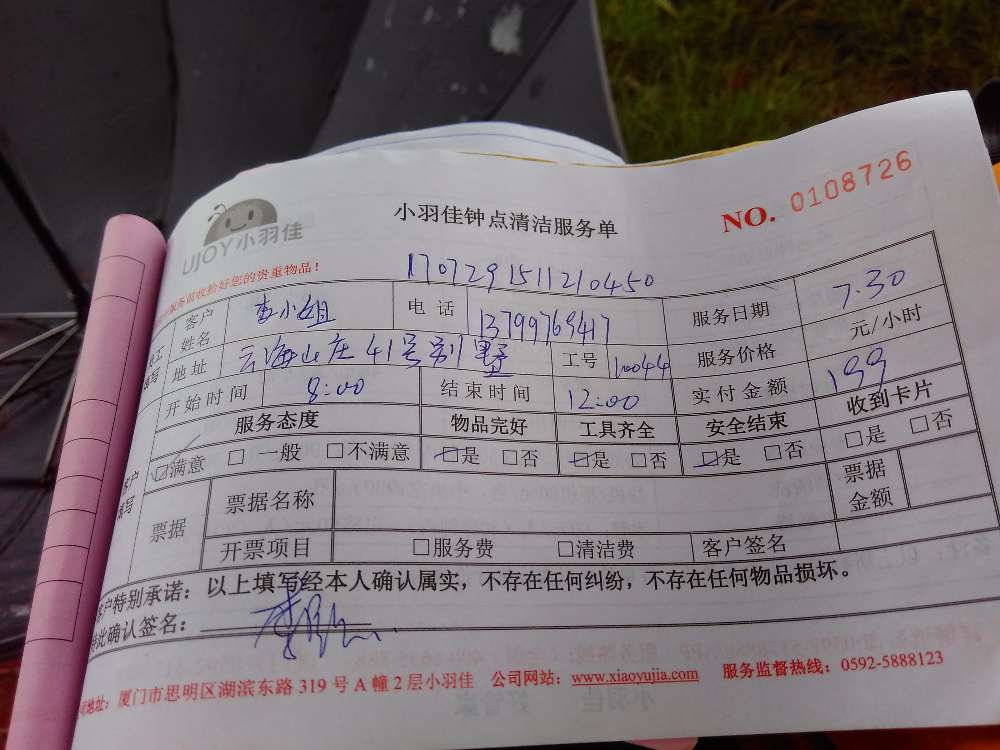 UJOY小羽佳
小羽佳钟点清洁服务单
NO. 0108726
服务前收拾好您的贵重物品！
170729151121 0450
客户姓名 李小姐 电话 13799769417 服务日期 7.30
地址 云海山庄41号别墅 工号 10044 服务价格 元/小时
开始时间 8:00 结束时间 12:00 实付金额 199
服务态度 物品完好 工具齐全 安全结束 收到卡片
☑满意 □一般 □不满意 ☑是 □否 ☑是 □否 ☑是 □否 □是 □否
客户填写
票据 票据名称 票据金额
开票项目 □服务费 □清洁费 客户签名
客户特别承诺：以上填写经本人确认属实，不存在任何纠纷，不存在任何物品损坏。
特此确认签名：
地址：厦门市思明区湖滨东路319号A幢2层小羽佳 公司网站：www.xiaoyujia.com 服务监督热线：0592-5888123